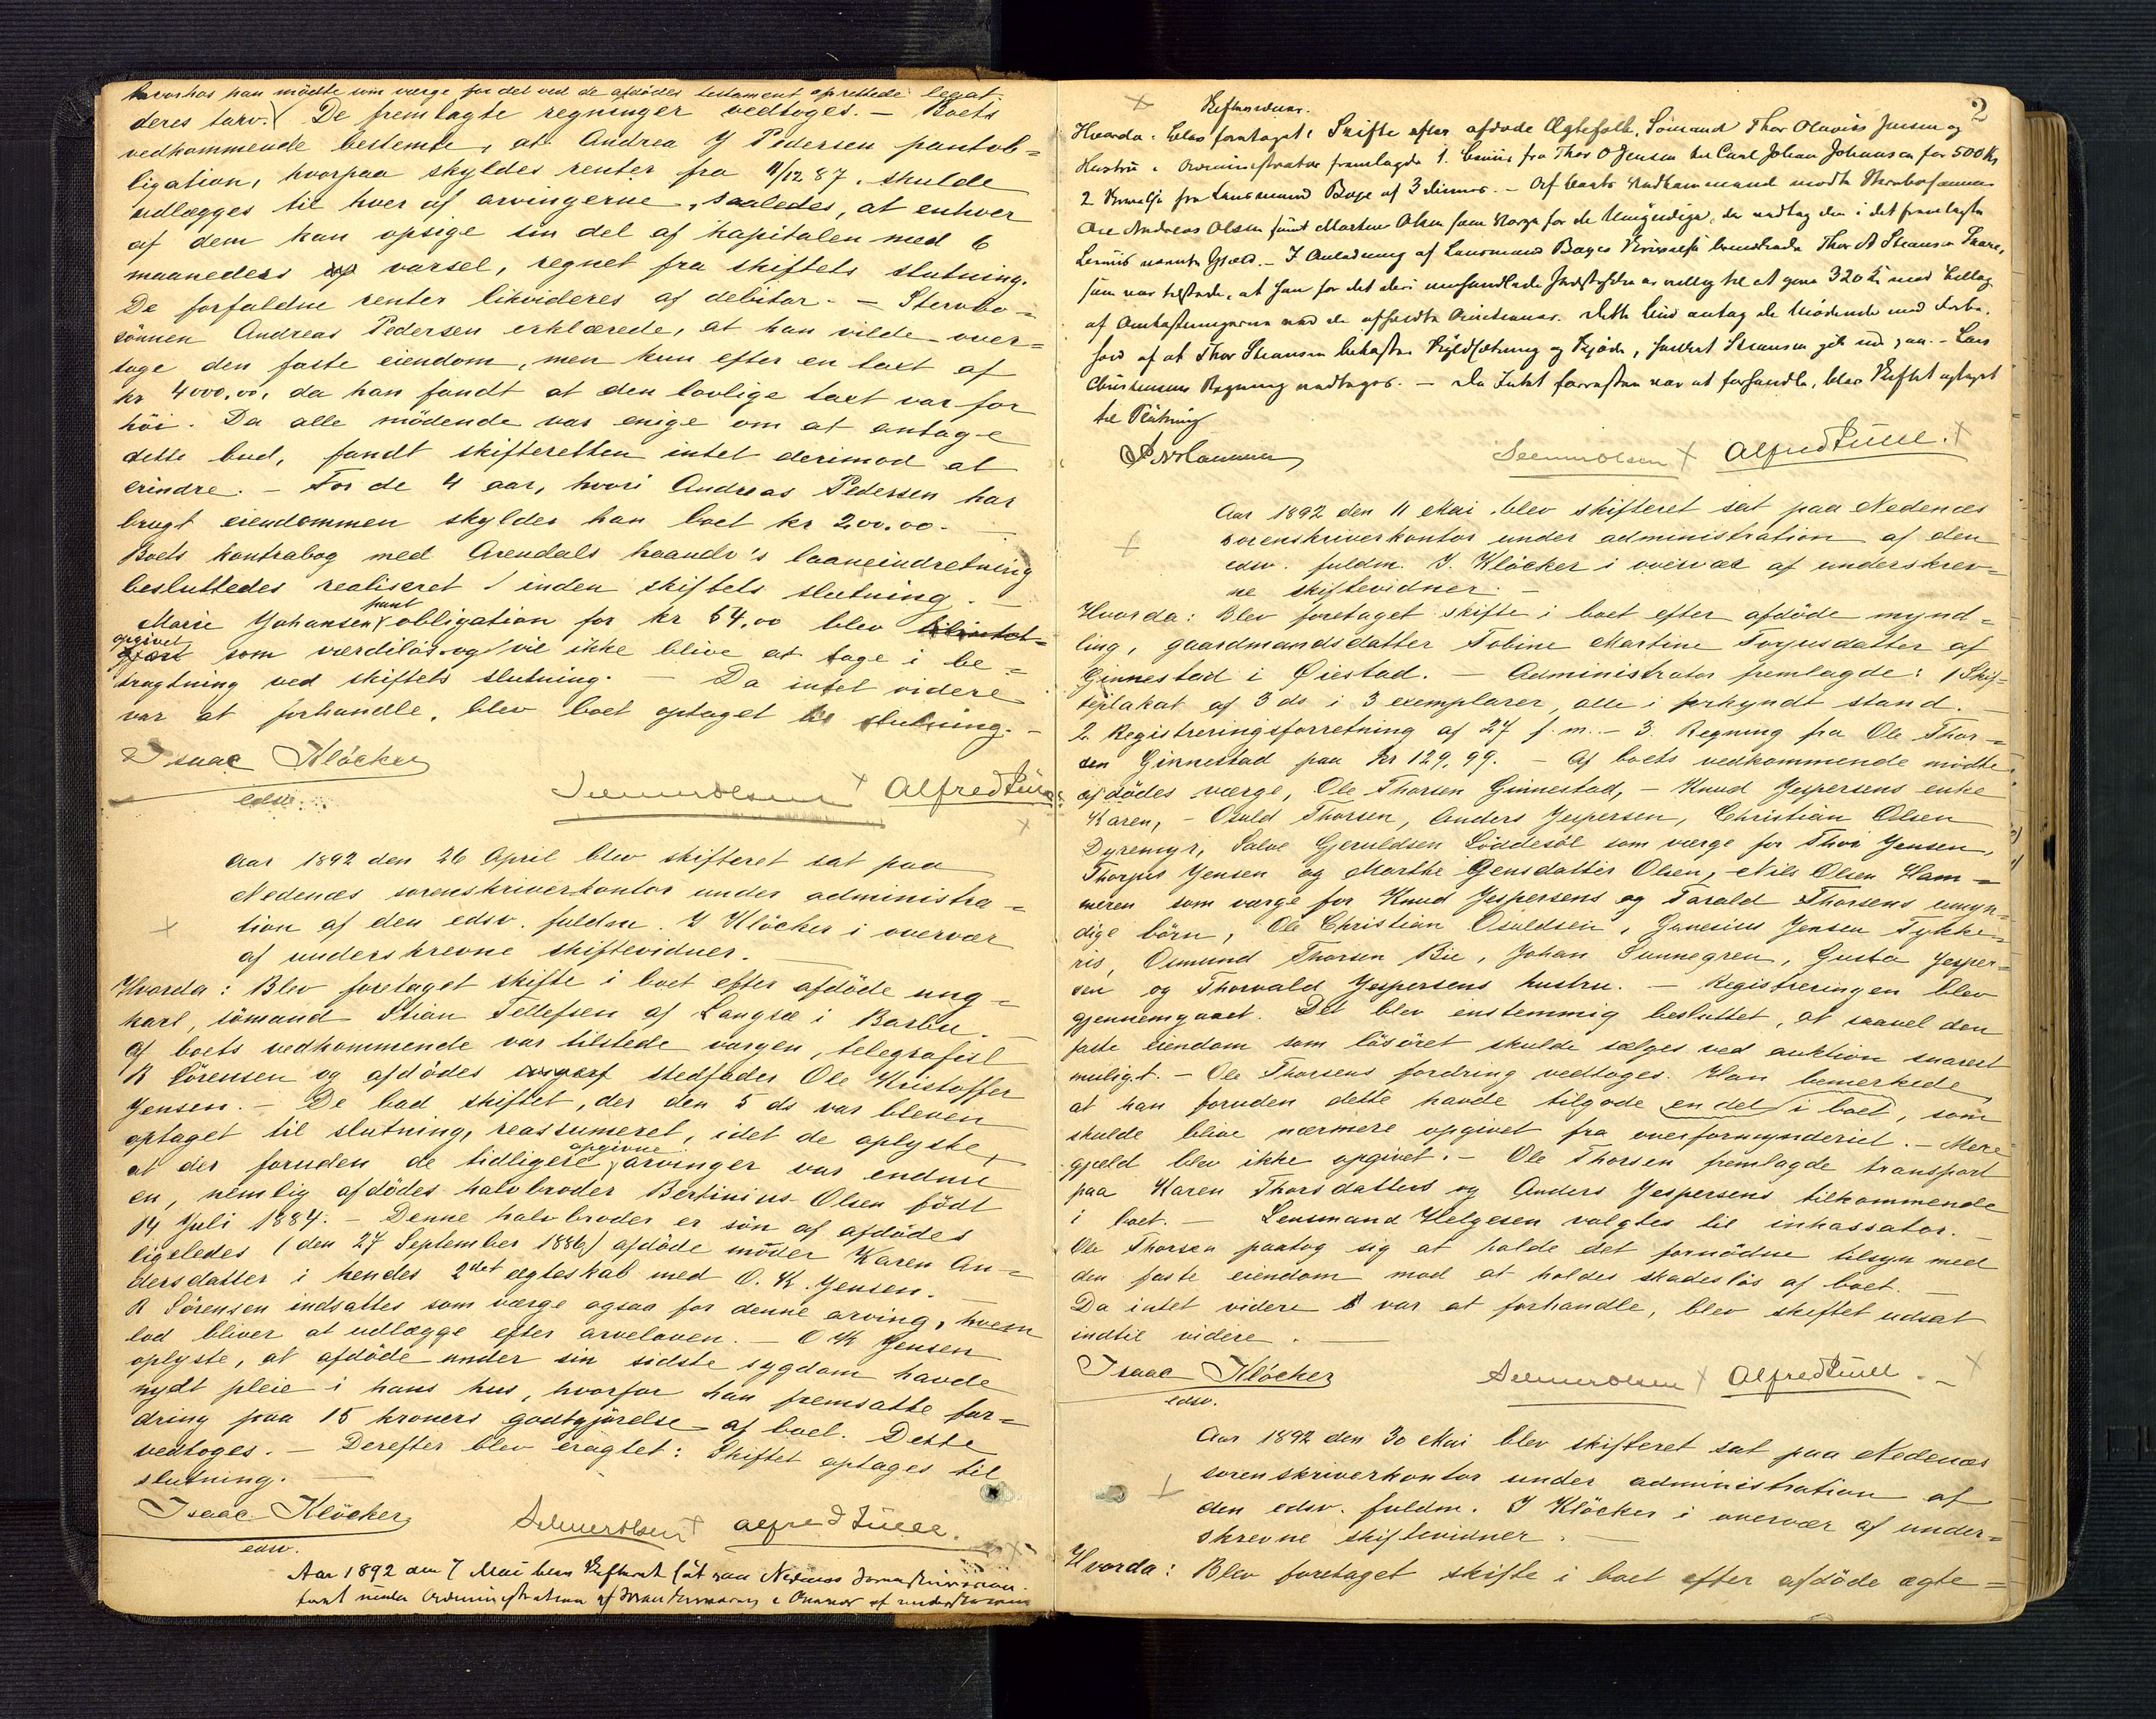 hvorhos han mødte som værge for det ved de afdødes testament oprettede legat
deres tarv. De fremlagte regninger vedtoges. — Boets
vedkommende bestemte, at Andrea J Pedersen pantob=
ligation, hvorpaa skyldes renter fra 11/12 87, skulde
udlægges til hver af arvingerne, saaledes, at enhver
af dem kan opsige sin del af kapitalen med 6
maaneders varsel, regnet fra skiftets slutning.
De forfaldne renter likvideres af debitor. — Stervbo=
sønnen Andreas Pedersen erklærede, at han vilde over=
tage den faste eiendom, men kun efter en taxt af
kr 4000,00, da han fandt at den lovlige taxt var for
høi. Da alle mødende var enige om at antage
dette bud, fandt skifteretten intet derimod at
erindre. — For de 4 aar, hvori Andreas Pedersen har
brugt eiendommen skylder han boet kr 200.00. —
Boets kontrabog med Arendals haandv's laaneindretning
besluttedes realiseret inden skiftets slutning. —
pant
Marie Johansen obligation for kr 54,00 blev
opgivet
som værdiløs og vil ikke blive at tage i be=
tragtning ved skiftets slutning. — Da intet videre
var at forhandle, blev boet optaget til slutning. —
Isaac Kløcker
edsv.
Selmer Olsen x Alfred
Aar 1892 den 26 April blev skifteret sat paa
Nedenæs sorenskriverkontor under administra=
tion af den edsv. fuldm. I Kløcker i overvær
af underskrevne skiftevidner. —
Hvorda: Blev foretaget skifte i boet efter afdøde ung=
karl, sømand Stian Tellefsen af Langsæ i Barbu. —
Af boets vedkommende var tilstede værgen, telegrafist
R Sørensen og afdødes stedfader Ole Kristoffer
Jensen. — De bad skiftet, der den 5 ds var bleven
optaget til slutning, reassumeret, idet de oplyste,
opgivne
at der foruden de tidligere arvinger var endnu
en, nemlig afdødes halvbroder Bertinius Olsen født
14 Juli 1884. — Denne halvbroder er søn af afdødes
ligeledes (den 27 September 1886) afdøde moder Karen An=
dersdatter i hendes 2det ægteskab med O. K. Jensen. —
R Sørensen indsattes som værge ogsaa for denne arving, hvem
lod bliver at udlægge efter arveloven. — O K Jensen
oplyste, at afdøde under sin sidste sygdom havde
nydt pleie i hans hus, hvorfor han fremsatte for=
dring paa 15 kroners godtgjørelse af boet. Dette
vedtoges. — Derefter blev eragtet: Skiftet optages til
slutning. —
Isaac Kløcker
edsv.
Selmer Olsen x Alfred
Aar 1892 den 7 Mai blev Skifteret sat paa Nedenæs Sorenskriverkon=
toret under Administration af Sorenskriveren i Overvær af underskrevne
2
Skiftevidner.
Hvorda: Blev foretaget Skifte efter afdøde Ægtefolk, Sømand Thor Olavius Jensen og
Hustru. Administrator fremlagde 1. Beviis fra Thor O Jensen til Carl Johan Johansen for 500 Kr,
2 Skrivelse fra Lensmand Boye af 3 dennes. — Af boets Vedkommende mødte Stervbosønnen
Ole Andreas Olsen samt Morten Olsen som Værge for de Umyndige, der vedtog den i det fremlagte
Beviis nævnte Gjæld. — I Anledning af Lensmand Boyes Skrivelse bemærkede Thor A Steansen
som var tilstede, at han for det deri omhandlede er villig til at give 320 Kr med Tillæg
af Omkostningerne ved de afholdte Auktioner. Dette Bud antog de Mødende med Forbe=
hold af at Thor Steansen bekoster Skyldsætning og Skjøde, hvilket Steansen gik ind paa. — Lars
Christensens Regning vedtoges. — Da Intet forresten var at forhandle, blev Skiftet optaget
til Slutning
Selmer Olsen x Alfred x
Aar 1892 den 11 Mai blev skifteret sat paa Nedenæs
sorenskriverkontor under administration af den
edsv. fuldm. I. Kløcker i overvær af underskrev=
ne skiftevidner. —
Hvorda: Blev foretaget skifte i boet efter afdøde mynd=
ling, gaardmandsdatter Tobine Martine Torjusdatter af
Ginnestad i Øiestad. — Administrator fremlagde: 1 Skif=
teplakat af 3 ds i 3 exemplarer, alle i forkyndt stand. —
2. Registreringsforretning af 27 f. m. — 3. Regning fra Ole Thor=
sen Ginnestad paa kr 129,99. — Af boets vedkommende mødte
afdødes værge, Ole Thorsen Ginnestad, — Knud Jespersens enke
Karen, — Osuld Thorsen, Anders Jespersen, Christian Olsen
Dyremyr, Salve Gjeruldsen Løddesøl som værge for Thor Jensen,
Thorjus Jensen og Marthe Jensdatter Olsen, — Nils Olsen Ham=
meren som værge for Knud Jespersens og Tarald Thorsens umyn=
dige børn, Ole Christian Osuldsen, Gunesius Jensen Tykke=
ris, Osmund Thorsen Bie, Johan Sunnegren, Gusta Jesper=
sen og Thorvald Jespersens hustru. — Registreringen blev
gjennemgaaet. Det blev enstemmig besluttet, at saavel den
faste eiendom som løsøret skulde sælges ved auktion snarest
muligt. — Ole Thorsens fordring vedtoges. Han bemerkede
at han foruden dette havde tilgode en del i boet, som
skulde blive nærmere opgivet fra overformynderiet. — Mere
gjæld blev ikke opgivet. — Ole Thorsen fremlagde transport
paa Karen Thorsdatters og Anders Jespersens tilkommende
i boet. — Lensmand Helgesen valgtes til inkassator. —
Ole Thorsen paatog sig at holde det fornødne tilsyn med
den faste eiendom mod at holdes skadesløs af boet. —
Da intet videre var at forhandle, blev skiftet udsat
indtil videre. —
Isaac Kløcker
edsv.
Selmer Olsen x Alfred x
Aar 1892 den 30 Mai blev skifteret sat paa Nedenæs
sorenskriverkontor under administration af
den edsv. fuldm. I Kløcker i overvær af under=
skrevne skiftevidner. —
Hvorda: Blev foretaget skifte i boet efter afdøde ægte=